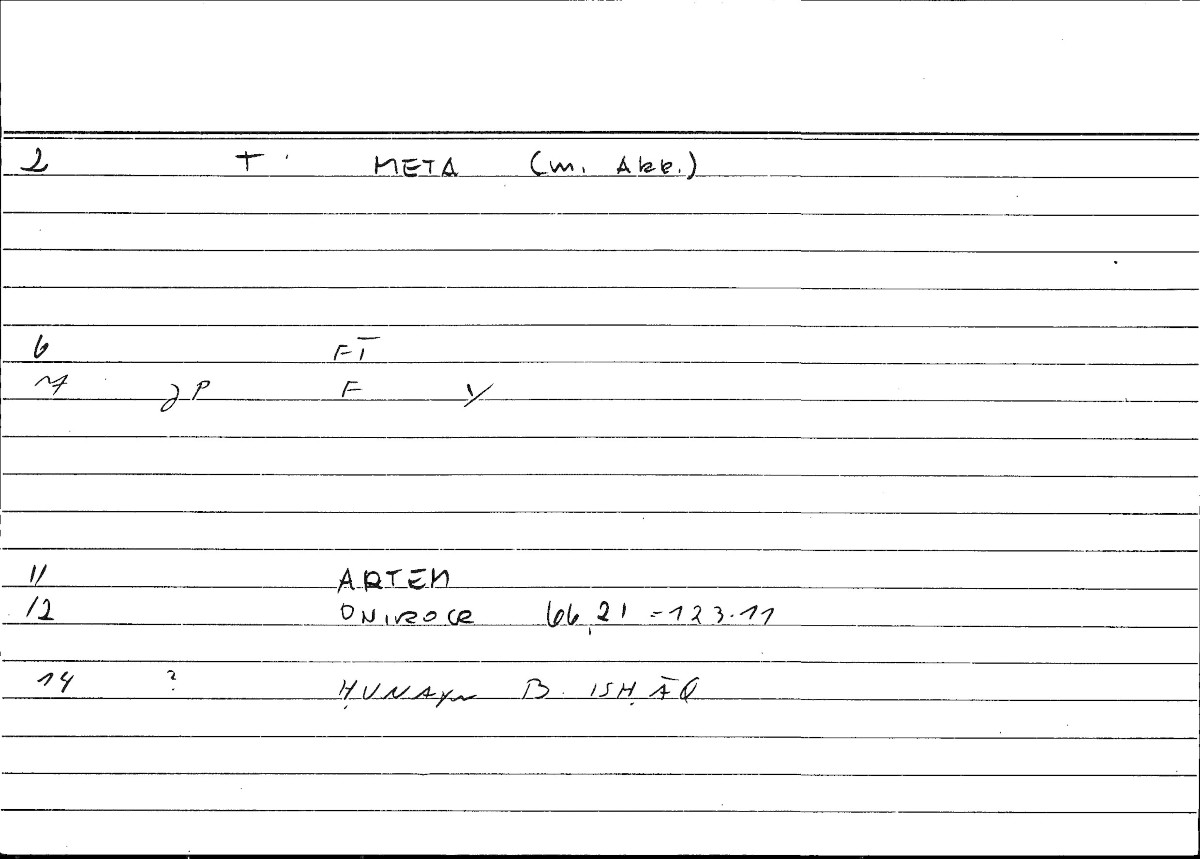 2 T META (m. Akk.)
6 FT
7 gP F Y
11 ARTEM
12 ONIROCR 66,21 = 123.11
14 ? ḤUNAYN B. ISḤĀQ